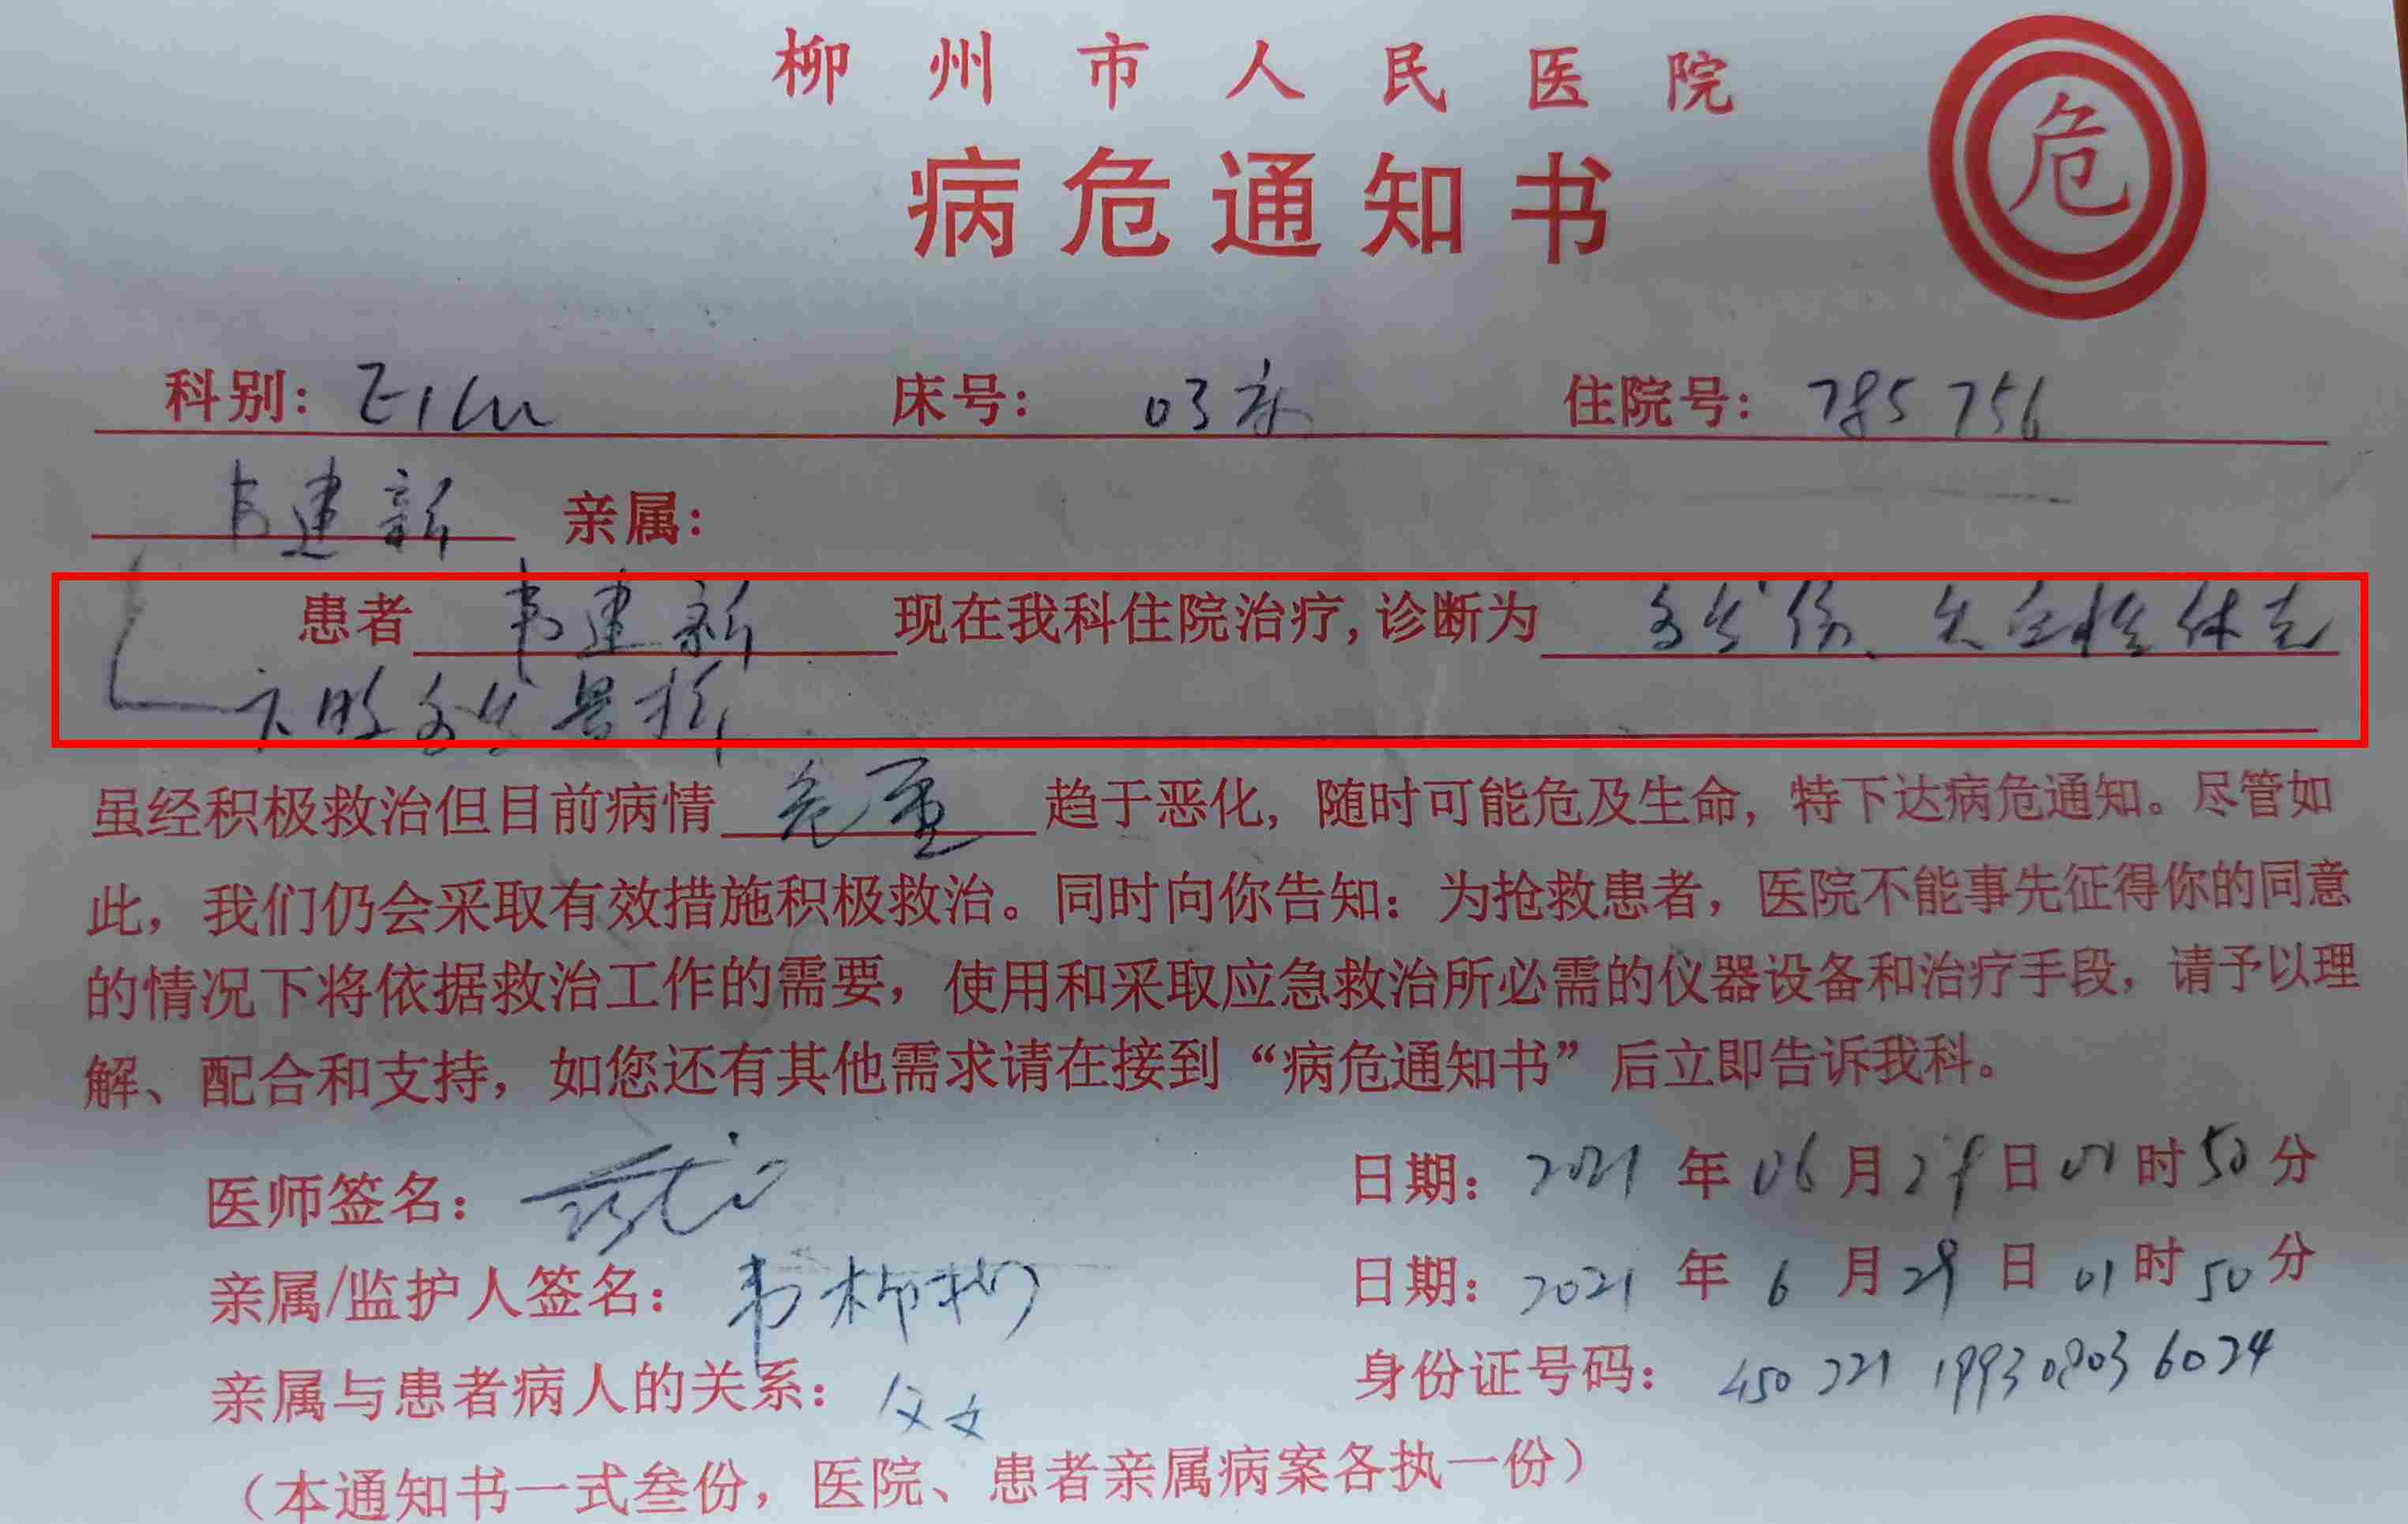 柳州市人民医院
病危通知书
危
科别: EICU 床号: 03床 住院号: 785756
韦建新 亲属:
患者 韦建新 现在我科住院治疗,诊断为 多发伤、失血性休克
下肢多发骨折
虽经积极救治但目前病情 危重 趋于恶化, 随时可能危及生命, 特下达病危通知。尽管如
此, 我们仍会采取有效措施积极救治。同时向你告知: 为抢救患者, 医院不能事先征得你的同意
的情况下将依据救治工作的需要, 使用和采取应急救治所必需的仪器设备和治疗手段, 请予以理
解、配合和支持, 如您还有其他需求请在接到“病危通知书”后立即告诉我科。
医师签名: 日期: 2021 年 06 月 29 日 01 时 50 分
亲属/监护人签名: 韦柳 日期: 2021 年 6 月 29 日 01 时 50 分
亲属与患者病人的关系: 父女 身份证号码: 450221199308036024
(本通知书一式叁份, 医院、患者亲属病案各执一份)